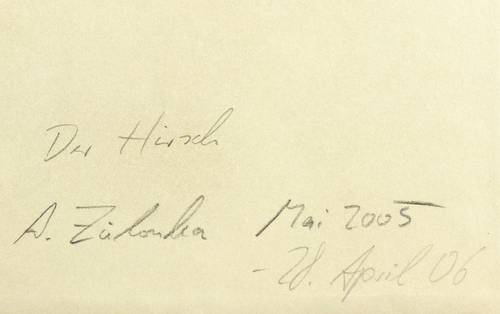 Der Hirsch
A. Mai 2005
- 28. April 06